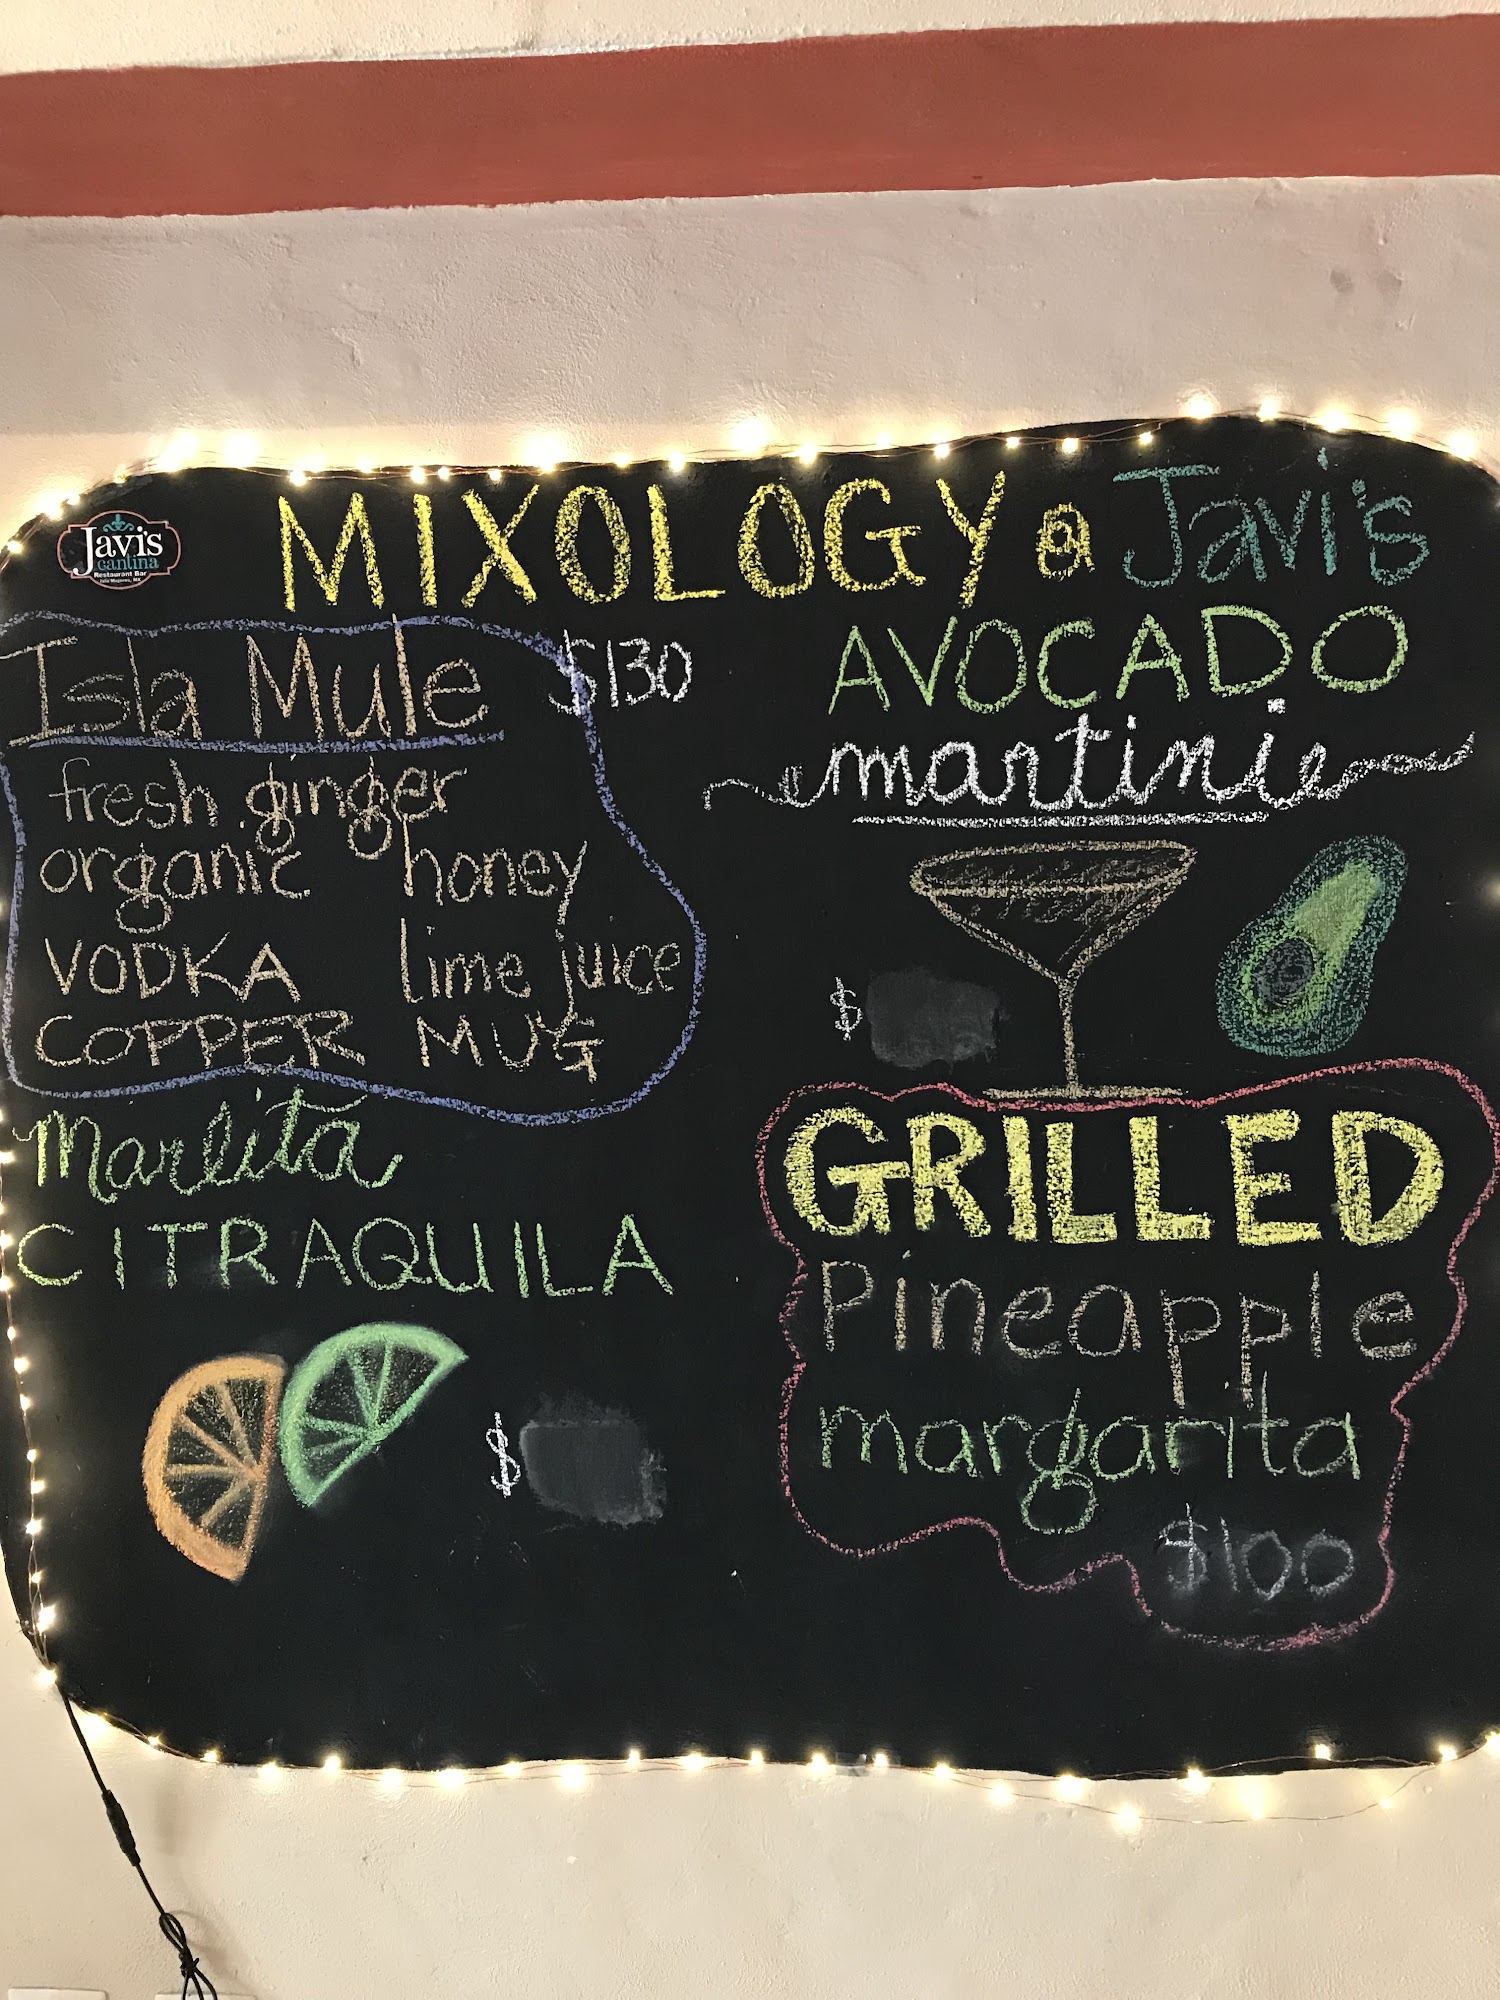 MIXOLOGY @ Javi's
Javi's
cantina
Restaurant Bar
Isla Mujeres, MX
Isla Mule $130
fresh ginger
organic honey
VODKA lime juice
COPPER MUG
Marlita
CITRAQUILA
$
AVOCADO
martini
$
GRILLED
Pineapple
margarita
$100